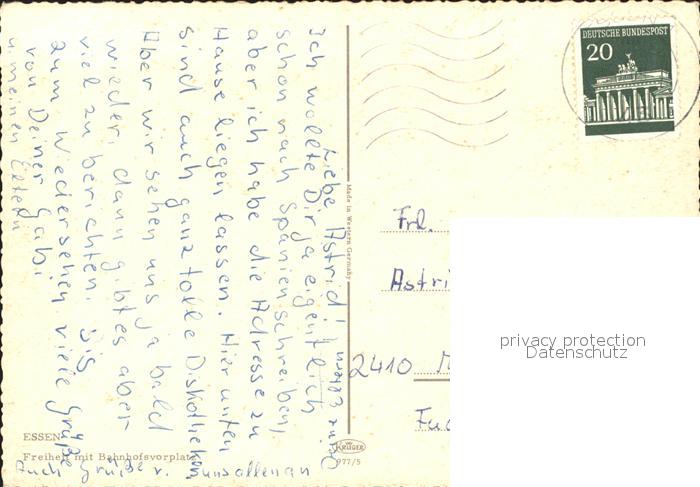 Liebe Astrid!
Ich wollte Dir ja eigentlich
schon nach Spanien schreiben,
aber ich habe die Adresse zu
Hause liegen lassen. Hier unten
sind auch ganz tolle Diskotheken
Aber wir sehen uns ja bald
wieder, dann gibt es aber
viel zu berichten. Bis
zum Wiedersehen viele Grüße
von Deiner Gabi
u meinen Eltern
Auch Grüße v. uns allen an
Eltern
ESSEN
Freiheit mit Bahnhofsvorplatz
Made in Western Germany
KRÜGER
977/5
DEUTSCHE BUNDESPOST
20
Frl.
Astri
2410 M
privacy protection
Datenschutz